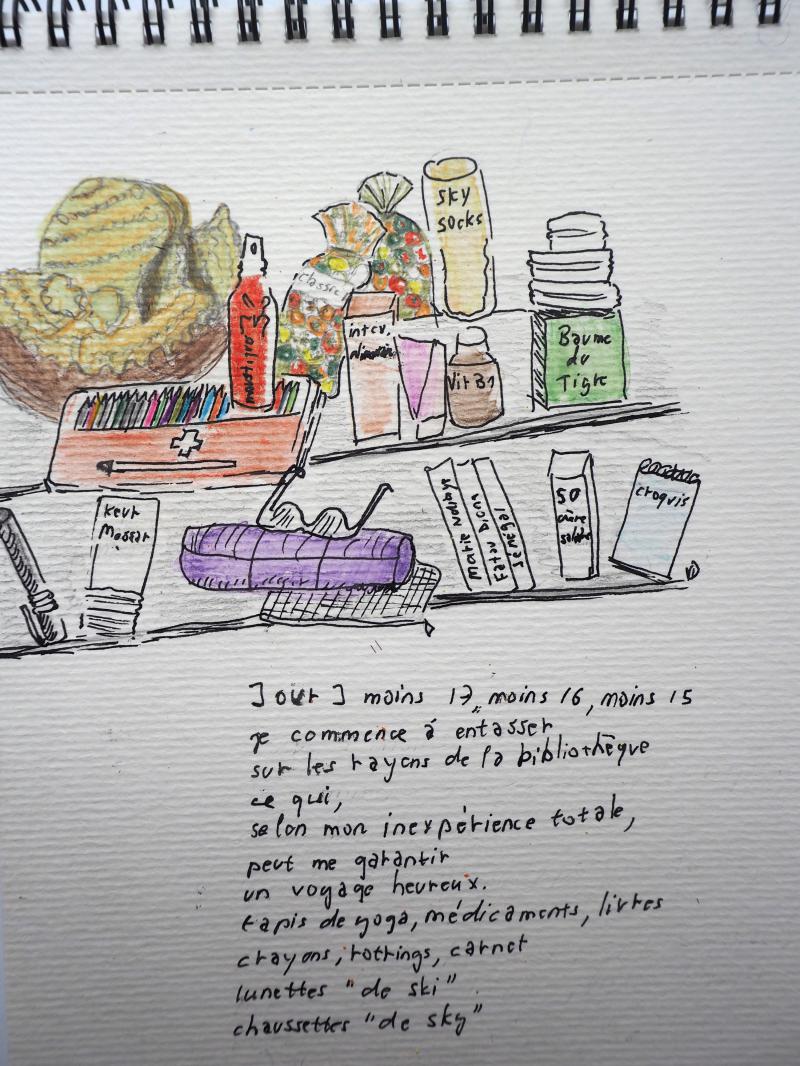 SKY
SOCKS
classic
moustiques
intev.
Vit B1
Baume
du
Tigre
Keur
Massar
Marie Ndiaye
Fatou Diome
Sénégal
50
crème
solaire
croquis
Jour J moins 17, moins 16, moins 15
je commence à entasser
sur les rayons de la bibliothèque
ce qui,
selon mon inexpérience totale,
peut me garantir
un voyage heureux.
tapis de yoga, médicaments, livres
crayons, rottings, carnet
lunettes "de ski"
chaussettes "de sky"